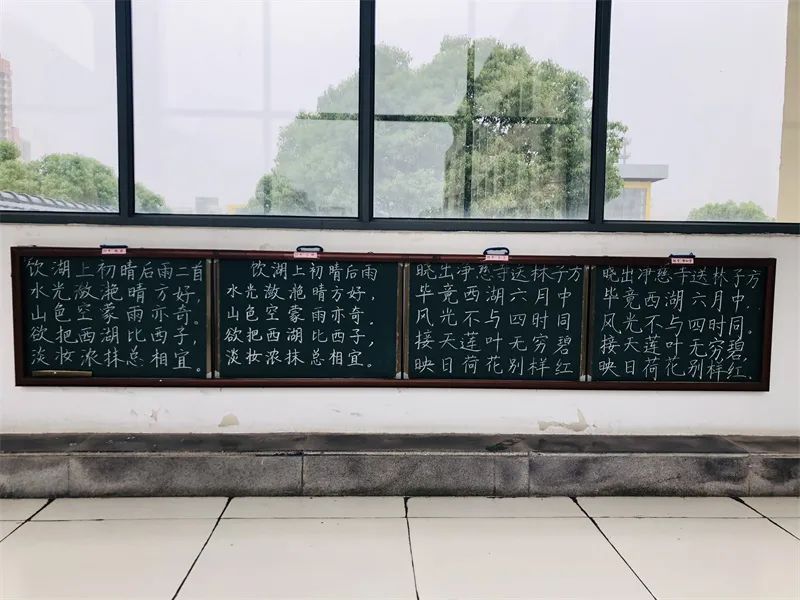 饮湖上初晴后雨二首
水光潋滟晴方好，
山色空蒙雨亦奇。
欲把西湖比西子，
淡妆浓抹总相宜。
饮湖上初晴后雨
水光潋滟晴方好，
山色空蒙雨亦奇。
欲把西湖比西子，
淡妆浓抹总相宜。
晓出净慈寺送林子方
毕竟西湖六月中
风光不与四时同
接天莲叶无穷碧
映日荷花别样红
晓出净慈寺送林子方
毕竟西湖六月中，
风光不与四时同。
接天莲叶无穷碧，
映日荷花别样红。